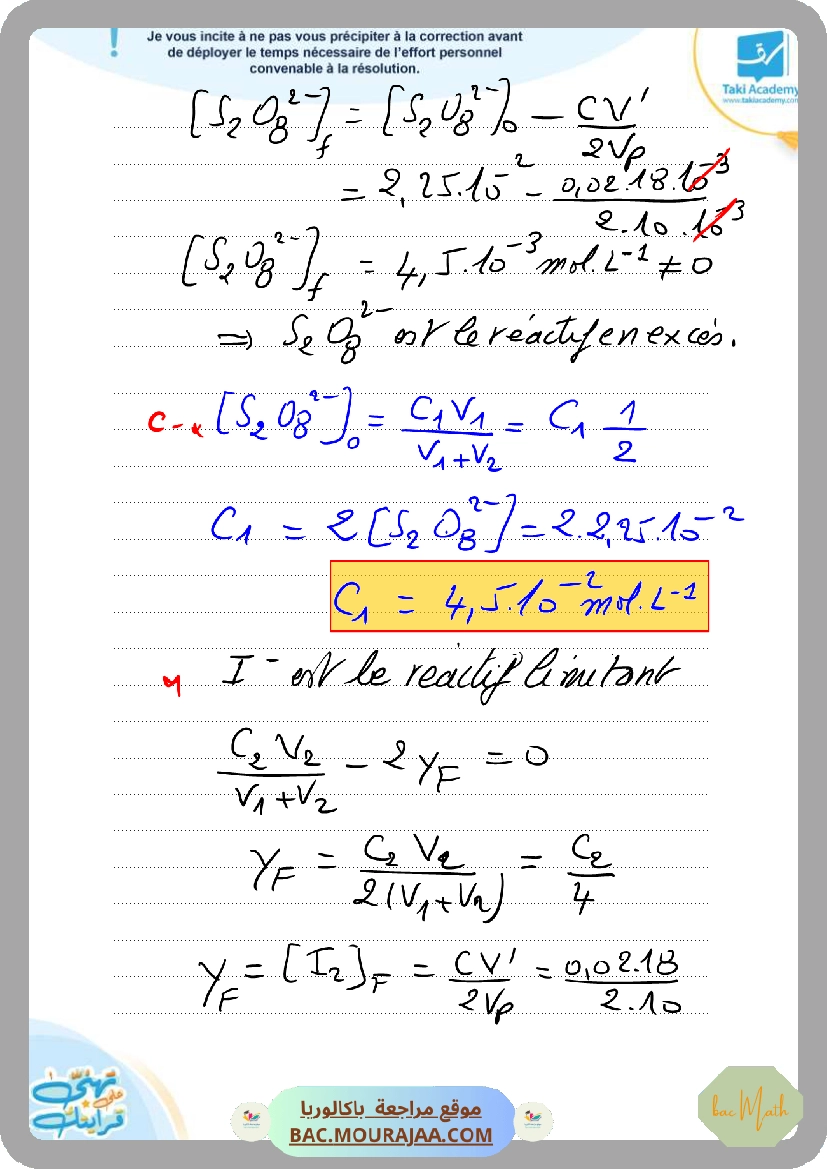 Je vous incite à ne pas vous précipiter à la correction avant
de déployer le temps nécessaire de l'effort personnel
convenable à la résolution.
Taki Academy
www.takiacademy.com
[S₂O₈²⁻]f = [S₂O₈²⁻]₀ − CV'/2Vp
= 2,25.10⁻² − 0,02.18.10⁻³/2.10.10⁻³
[S₂O₈²⁻]f = 4,5.10⁻³ mol.L⁻¹ ≠ 0
⇒ S₂O₈²⁻ est le réactif en excés.
C-* [S₂O₈²⁻]₀ = C₁V₁/V₁+V₂ = C₁ 1/2
C₁ = 2[S₂O₈²⁻] = 2.2,25.10⁻²
C₁ = 4,5.10⁻² mol.L⁻¹
* I⁻ est le réactif limitant
C₂V₂/V₁+V₂ − 2yF = 0
yF = C₂V₂/2(V₁+V₂) = C₂/4
yF = [I₂]F = CV'/2Vp = 0,02.18/2.10
موقع مراجعة باكالوريا
BAC.MOURAJAA.COM
bac Math